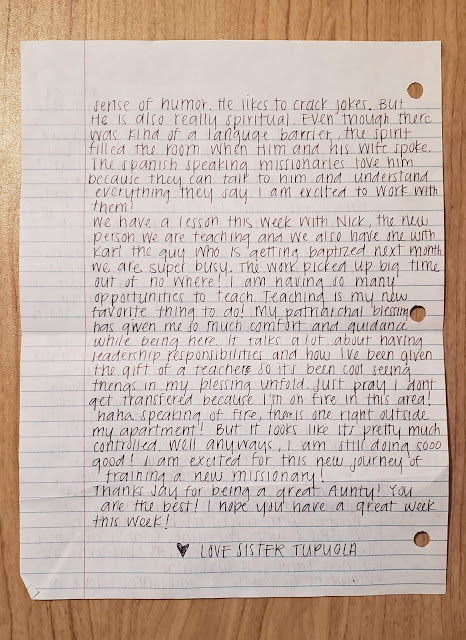 sense of humor. He likes to crack jokes. But
He is also really spiritual. Even though there
was kind of a languge barrier, the spirit
filled the room when Him and his wife spoke.
The spanish speaking missionaries love him
because they can talk to him and understand
everything they say. I am excited to work with
them!
We have a lesson this week with Nick, the new
person we are teaching and we also have one with
Karl the guy who is getting baptized next month
we are super busy. The work picked up big time
out of no where! I am having so many
opportunities to teach. Teaching is my new
favorite thing to do! My patriarchal blessing
has given me so much comfort and guidance
while being here. It talks a lot about having
leadership responsibilities and how I've been given
the gift of a teacher. So it's been cool seeing
things in my blessing unfold. Just pray I dont
get transfered because I'm on fire in this area!
haha speaking of fire, there is one right outside
my apartment! But it looks like its pretty much
controlled. Well anyways, I am still doing sooo
good! I am excited for this new journey of
training a new missionary!
Thanks Jay for being a great Aunty! You
are the best! I hope you have a great week
this week!
♥ LOVE SISTER TUPUOLA